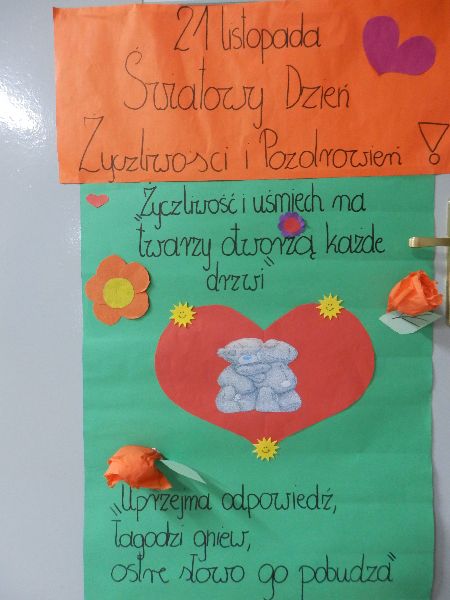 21 listopada
Światowy Dzień
Życzliwości i Pozdrowień !
"Życzliwość i uśmiech na
twarzy otworzą każde
drzwi"
"Uprzejma odpowiedź,
łagodzi gniew,
ostre słowo go pobudza"